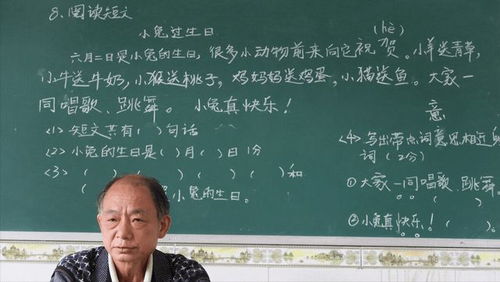 8、阅读短文
小兔过生日
(hè)
六月二日是小兔的生日,很多小动物前来向它祝贺。小羊送青草,
小牛送牛奶,小猴送桃子,鸡妈妈送鸡蛋,小猫送鱼。大家一
同唱歌、跳舞。 小兔真快乐!
<1>短文共有( )句话
<2>小兔的生日是( )月( )日 1分
<3>( )( )( )( )和
( 小兔的生日。
意
<4>写出带点词意思相近的
词(2分)
①大家一同唱歌、跳舞。
( )
②小兔真快乐!( )。